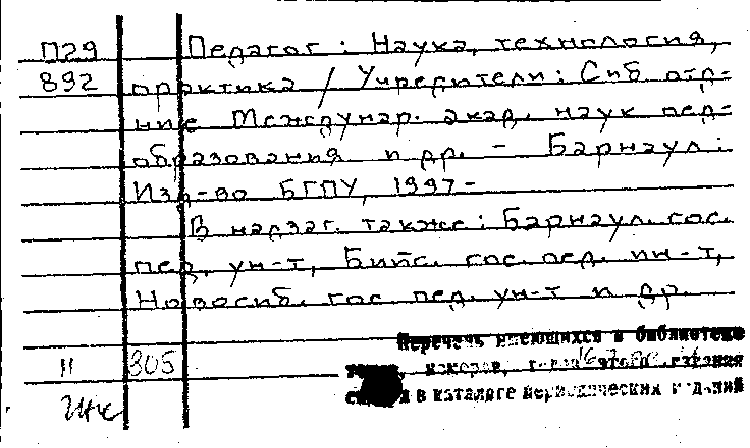 П29 Педагог: Наука, технология,
892 практика / Учредители: Сиб. отд-
ние Междунар. акад. наук пед-
образования и др. - Барнаул:
Изд-во БГПУ, 1997-
В надзаг. также: Барнаул. гос.
пед. ун-т, Бийс. гос. пед. ин-т,
Новосиб. гос. пед. ун-т и др.
Перечень имеющихся в библиотеке
11 305 томов, номеров,
в каталоге периодических изданий